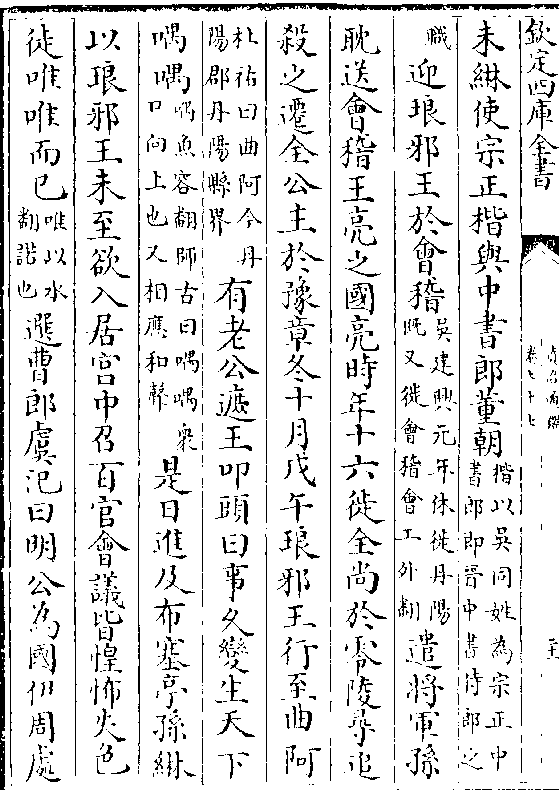 欽定四庫全書
卷七十七
未綝使宗正楷與中書郎董朝楷以吳同姓為宗正中書郎即晉中書侍郎之
職迎琅邪王於會稽吳建興元年休徙丹陽既又徙會稽會工外翻遣將軍孫
耽送會稽王亮之國亮時年十六徙全尚於零陵尋追
殺之遷全公主於豫章冬十月戊午琅邪王行至曲阿
杜祐曰曲阿今丹陽郡丹陽縣界有老公遮王叩頭曰事久變生天下
喁喁喁魚容翻師古曰喁喁衆口向上也又相應和聲是日進及布塞亭孫綝
以琅邪王未至欲入居宮中召百官會議皆惶怖失色
徒唯唯而已唯以水翻諾也選曹郎虞汜曰明公為國伊周處